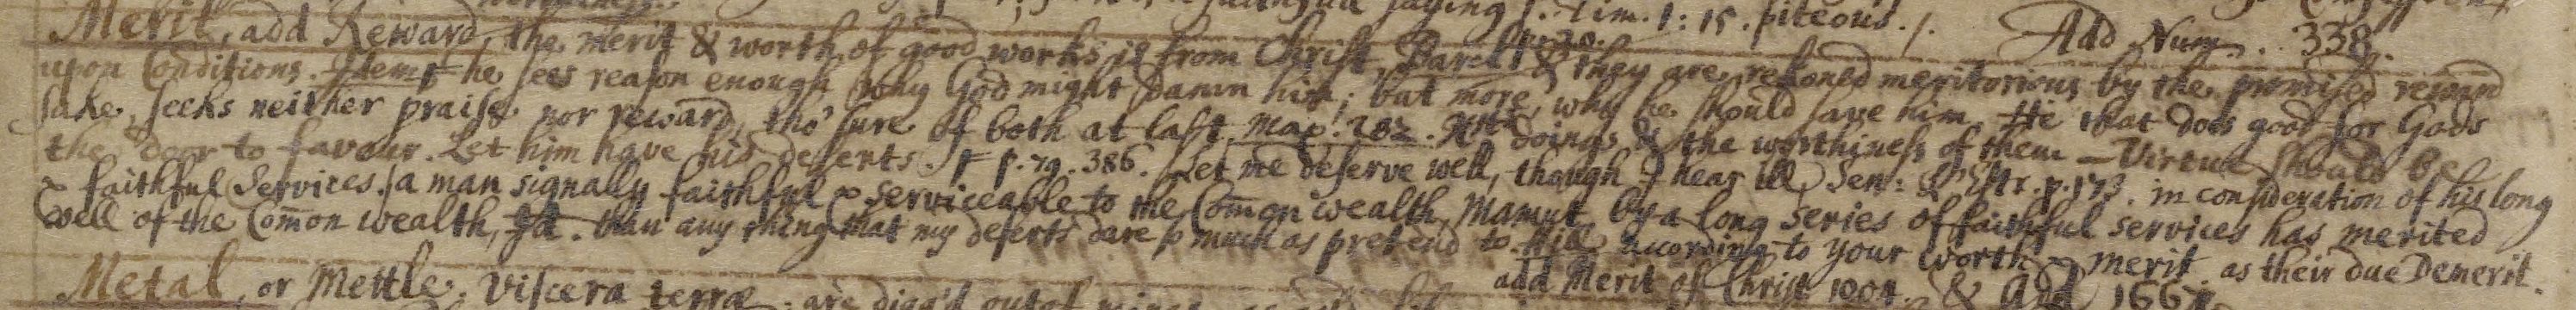 saying 1. Tim. 1: 15. piteous./. Add Num. 338.
Merit, add Reward, the merit & worth of good works is from Christ, Barcl: p. 30. & they are rekoned meritorious by the promised reward
upon Conditions. Idem he sees reason enough why God might damn him; but more, why he should save him. He that does good for Gods
sake, seeks neither praise nor reward, tho' sure of both at last, Max: 282. doings & the worthiness of them – Virtue should be
the door to favour. Let him have his deserts. p. 79. 386. Let me deserve well, though I hear ill, Sen: L'Estr. p. 173. in consideration of his long
& faithful Services./ a man signally faithful & serviceable to the Com̄on wealth, by a long series of faithful services has merited
well of the Com̄on wealth, Id. than any thing that my deserts dare so much as pretend to according to your worth & merit. as their due Demerit.
add Merit of Christ 1004. & Add 1667
Metal, or Mettle. Viscera terræ. are digg'd out of mines